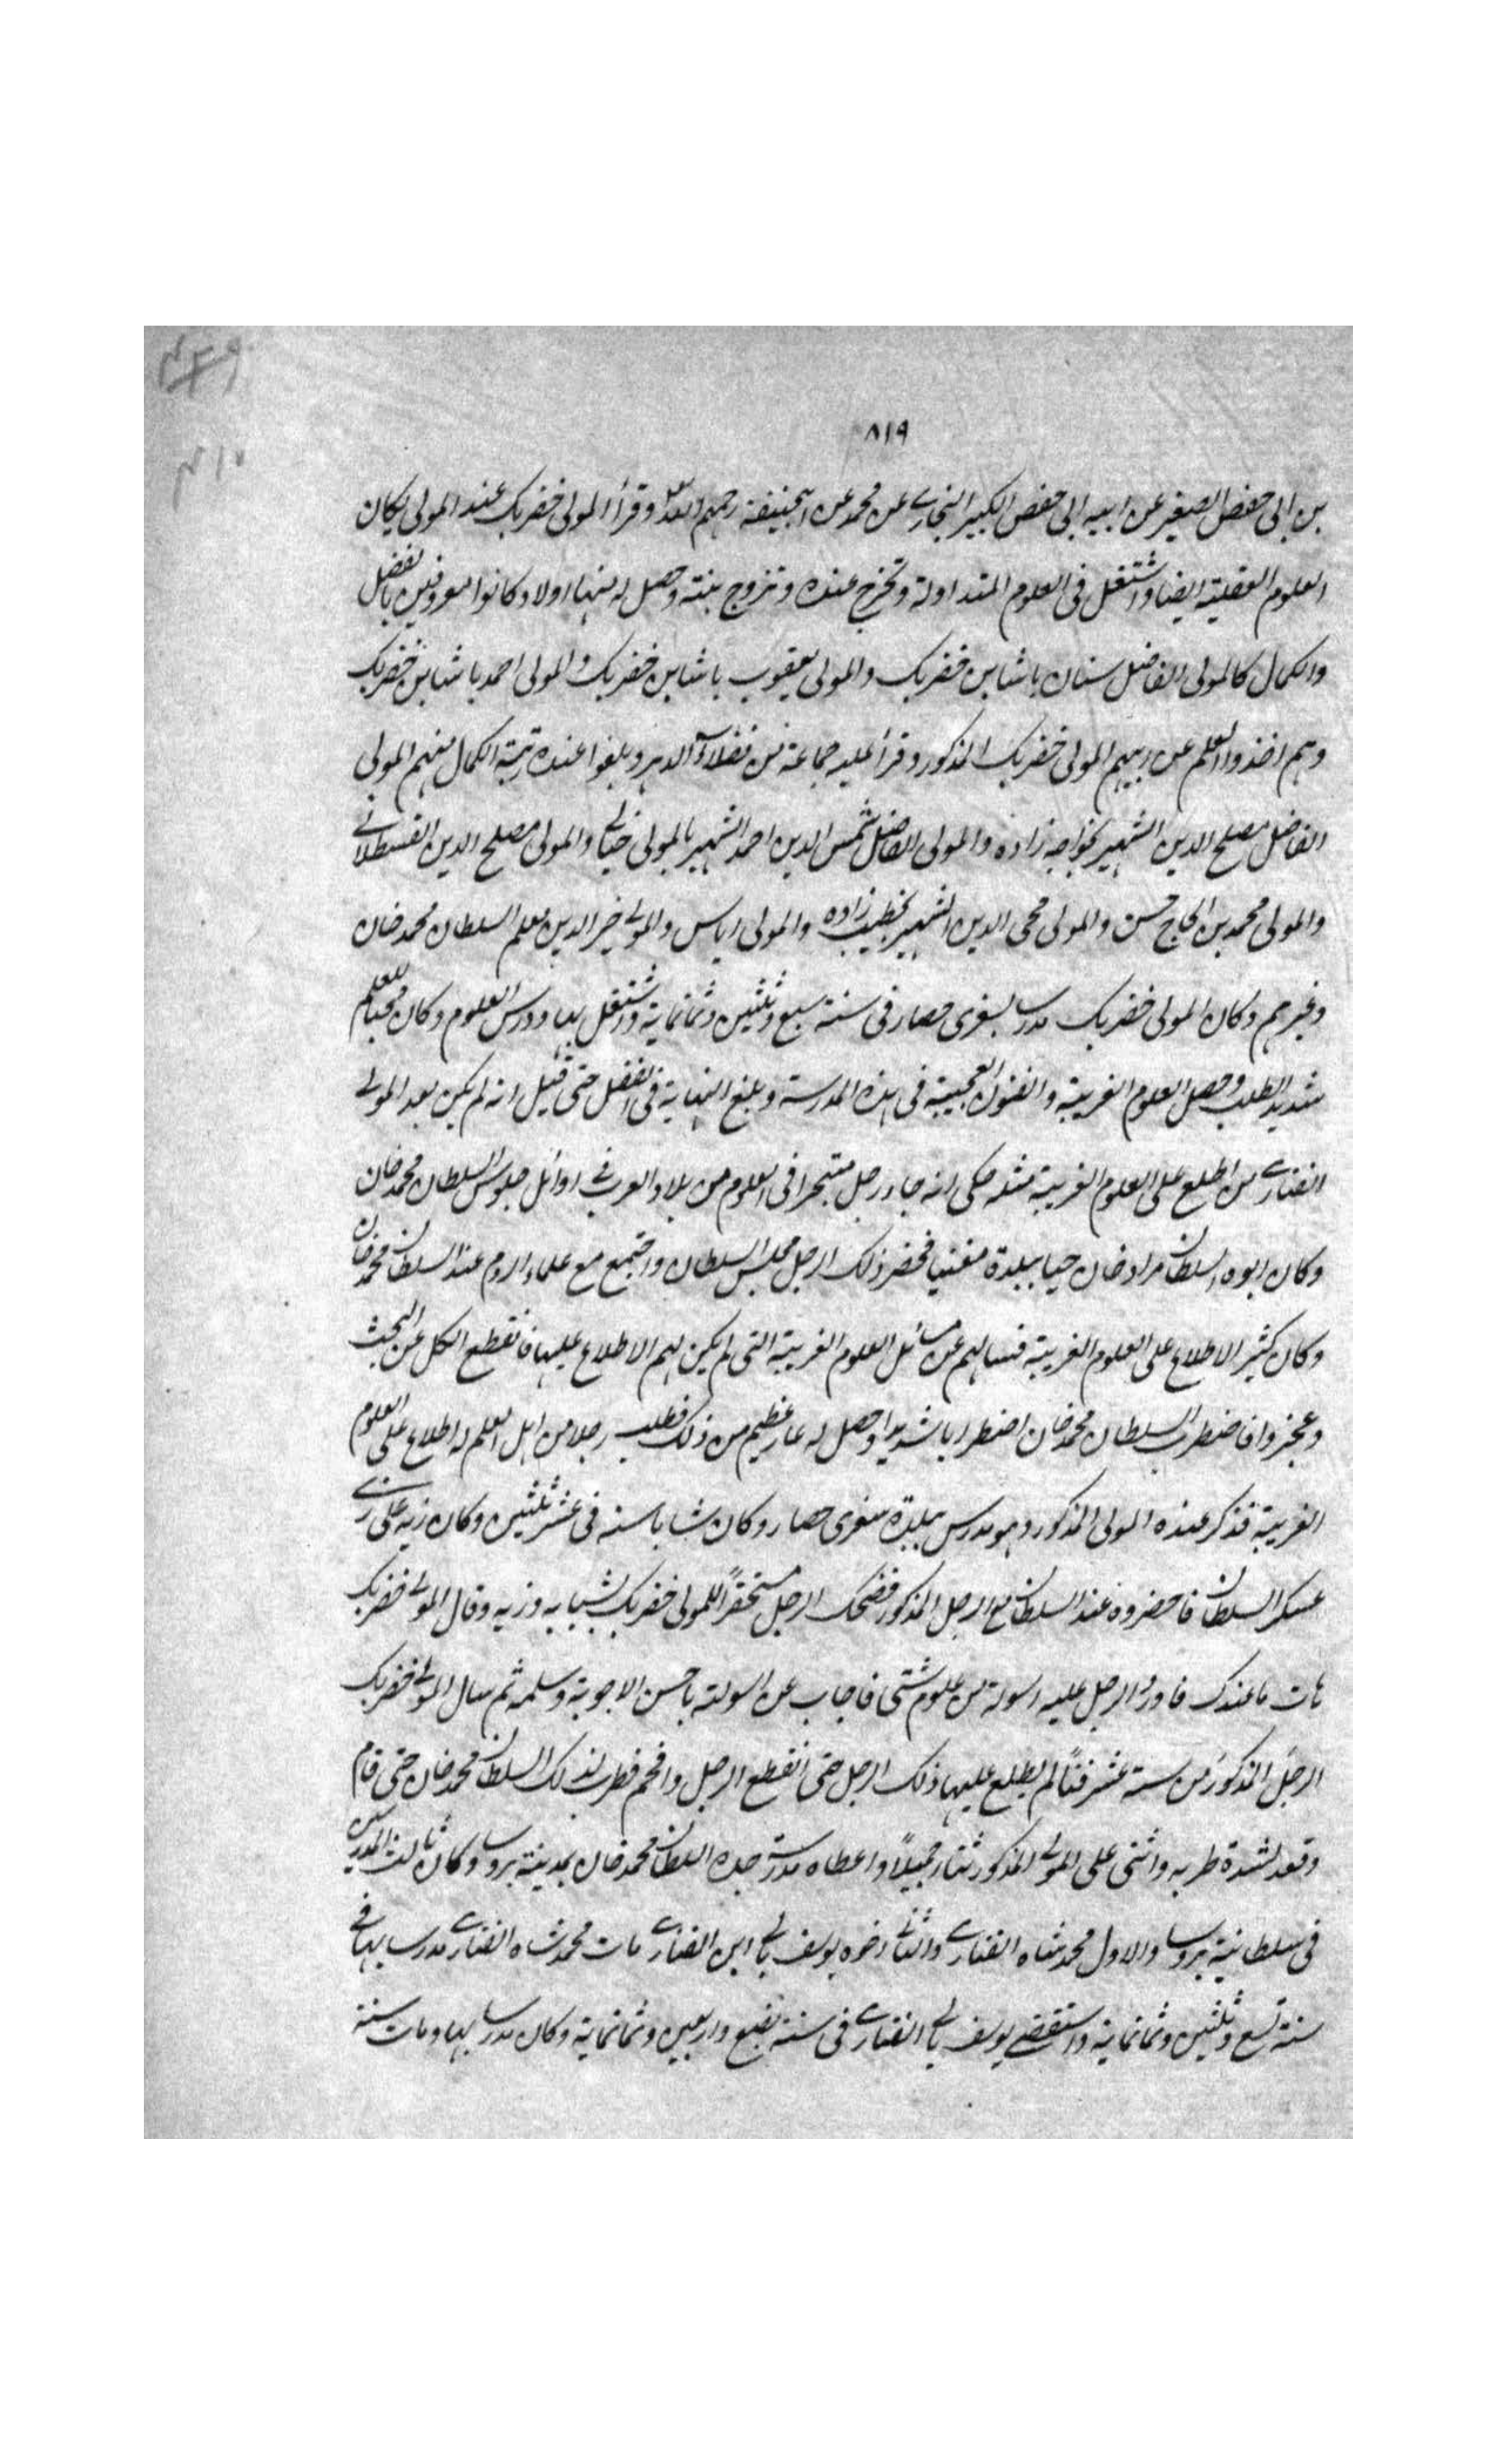 ٨١٩
بن ابى حفص الصغير عن ابيه ابى حفص الكبير البخارى عن محمد عن ابيحنيفة رحمهم الله وقرأ المولى خضربك عند المولى يكان
العلوم العقلية ايضا واشتغل فى العلوم المتداولة وتخرج عنده وتزوج بنته وحصل له منها اولاد كانوا معروفين بالفضل
والكمال كالمولى الفاضل سنان باشا بن خضربك والمولى يعقوب باشا بن خضربك والمولى احمد باشا بن خضربك
وهم اخذوا العلم عن ابيهم المولى خضربك المذكور وقرأ عليه جماعة من فضلاء الدهر وبلغوا عنده رتبة الكمال منهم المولى
الفاضل مصلح الدين الشهير بخواجه زاده والمولى الفاضل شمس الدين احمد الشهير بالمولى خيالى والمولى مصلح الدين القسطلانى
والمولى محمد بن الحاج حسن والمولى محى الدين الشهير بخطيب زاده والمولى اياس والمولى خير الدين معلم السلطان محمد خان
وغيرهم وكان المولى خضربك مدرسا بسفرى حصار فى سنة سبع وثلثين وثمانماية واشتغل بها ودرس العلوم وكان محبا للعلم
شديد الطلب وحصل العلوم الغريبة والفنون العجيبة فى هذه المدرسة وبلغ النهاية فى الفضل حتى قيل انه لم يكن بعد المولى
الفنارى من اطلع على العلوم الغريبة مثله حكى انه جاء رجل متبحر فى العلوم من بلاد العرب فى اوائل جلوس السلطان محمد خان
وكان ابوه السلطان مراد خان حيا ببلدة مغنيا فحضر ذلك الرجل مجلس السلطان واجتمع مع علماء الروم عند السلطان محمد خان
وكان كثير الاطلاع على العلوم الغريبة فسالهم عن مسائل العلوم الغريبة التى لم يكن لهم الاطلاع عليها فانقطع الكل عن البحث
وعجزوا فاضطرب السلطان محمد خان اضطرابا شديدا وحصل له عار عظيم من ذلك فطلب رجلا من اهل العلم له اطلاع على العلوم
الغريبة فذكر عنده المولى المذكور وهو مدرس ببلدة سفرى حصار وكان شابا سنه فى عشر ثلثين وكان زيه على زى
عسكر السلطان فاحضروه عند السلطان مع الرجل المذكور فضحك الرجل مستحقرًا للمولى خضربك لشبابه وزيه وقال المولى خضربك
هات ما عندك فاورد الرجل عليه اسولة من علوم شتى فاجاب عن اسولته باحسن الاجوبة وسلمه ثم سال المولى خضربك
الرجل المذكور من ستة عشر فنًا لم يطلع عليها ذلك الرجل حتى انقطع الرجل وافحم فطرب لذلك السلطان محمد خان حتى قام
وقعد لشدة طربه واثنى على المولى المذكور ثناء جميلًا واعطاه مدرسة جده السلطان محمد خان بمدينة بروسا وكان ثالث المدرس
فى سلطانية بروسا والاول محمد شاه الفنارى والثانى اخوه يوسف بالى ابن الفنارى مات محمد شاه الفنارى مدرسا بها فى
سنة تسع وثلثين وثمانماية واستقضى يوسف بالى الفنارى فى سنة بضع واربعين وثمانماية وكان مدرسا بها ومات سنة